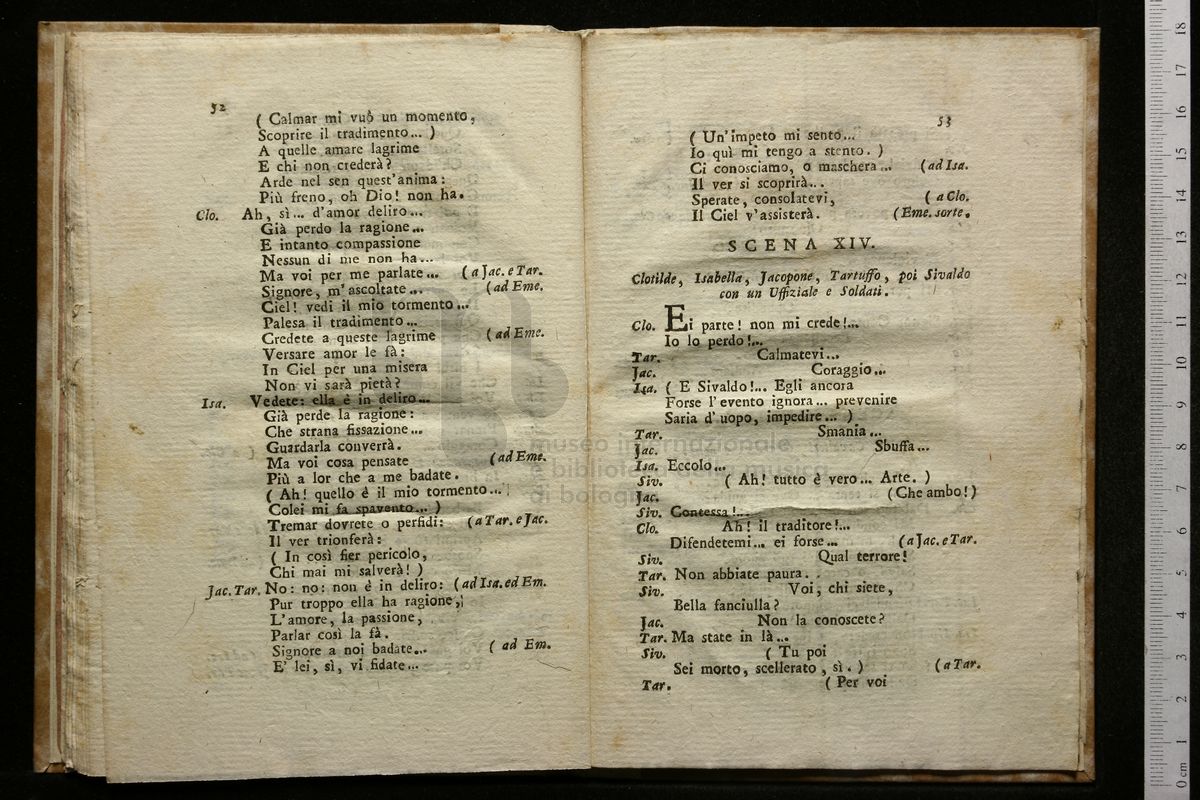 52
( Calmar mi vuò un momento,
Scoprire il tradimento... )
A quelle amare lagrime
E chi non crederà?
Arde nel sen quest'anima:
Più freno, oh Dio! non ha.
Clo. Ah, sì... d'amor deliro...
Già perdo la ragione...
E intanto compassione
Nessun di me non ha...
Ma voi per me parlate... ( a Jac. e Tar.
Signore, m'ascoltate... ( ad Eme.
Ciel! vedi il mio tormento...
Palesa il tradimento...
Credete a queste lagrime ( ad Eme.
Versare amor le fà:
In Ciel per una misera
Non vi sarà pietà?
Isa. Vedete: ella è in deliro...
Già perde la ragione:
Che strana fissazione...
Guardarla converà.
Ma voi cosa pensate ( ad Eme.
Più a lor che a me badate.
( Ah! quello è il mio tormento...
Colei mi fa spavento... )
Tremar dovrete o perfidi: ( a Tar. e Jac.
Il ver trionferà:
( In così fier pericolo,
Chi mai mi salverà! )
Jac. Tar. No: no: non è in deliro: ( ad Isa. ed Em.
Pur troppo ella ha ragione,
L'amore, la passione,
Parlar così la fà.
Signore a noi badate... ( ad Em.
E' lei, sì, vi fidate...
53
( Un'impeto mi sento...
Io quì mi tengo a stento. )
Ci conosciamo, o maschera... ( ad Isa.
Il ver si scoprirà...
Sperate, consolatevi, ( a Clo.
Il Ciel v'assisterà. ( Eme. sorte.
SCENA XIV.
Clotilde, Isabella, Jacopone, Tartuffo, poi Sivaldo
con un Uffiziale e Soldati.
Clo. Ei parte! non mi crede!...
Io lo perdo!...
Tar. Calmatevi...
Jac. Coraggio...
Isa. ( E Sivaldo!... Egli ancora
Forse l'evento ignora... prevenire
Saria d'uopo, impedire... )
Tar. Smania...
Jac. Sbuffa...
Isa. Eccolo...
Siv. ( Ah! tutto è vero... Arte. )
Jac. ( Che ambo! )
Siv. Contessa!...
Clo. Ah! il traditore!...
Difendetemi... ei forse... ( a Jac. e Tar.
Siv. Qual terrore!
Tar. Non abbiate paura..
Siv. Voi, chi siete,
Bella fanciulla?
Jac. Non la conoscete?
Tar. Ma state in là...
Siv. ( Tu poi
Sei morto, scellerato, sì. ) ( a Tar.
Tar. ( Per voi
museo internazionale
e biblioteca della musica
di bologna
0 cm 1 2 3 4 5 6 7 8 9 10 11 12 13 14 15 16 17 18